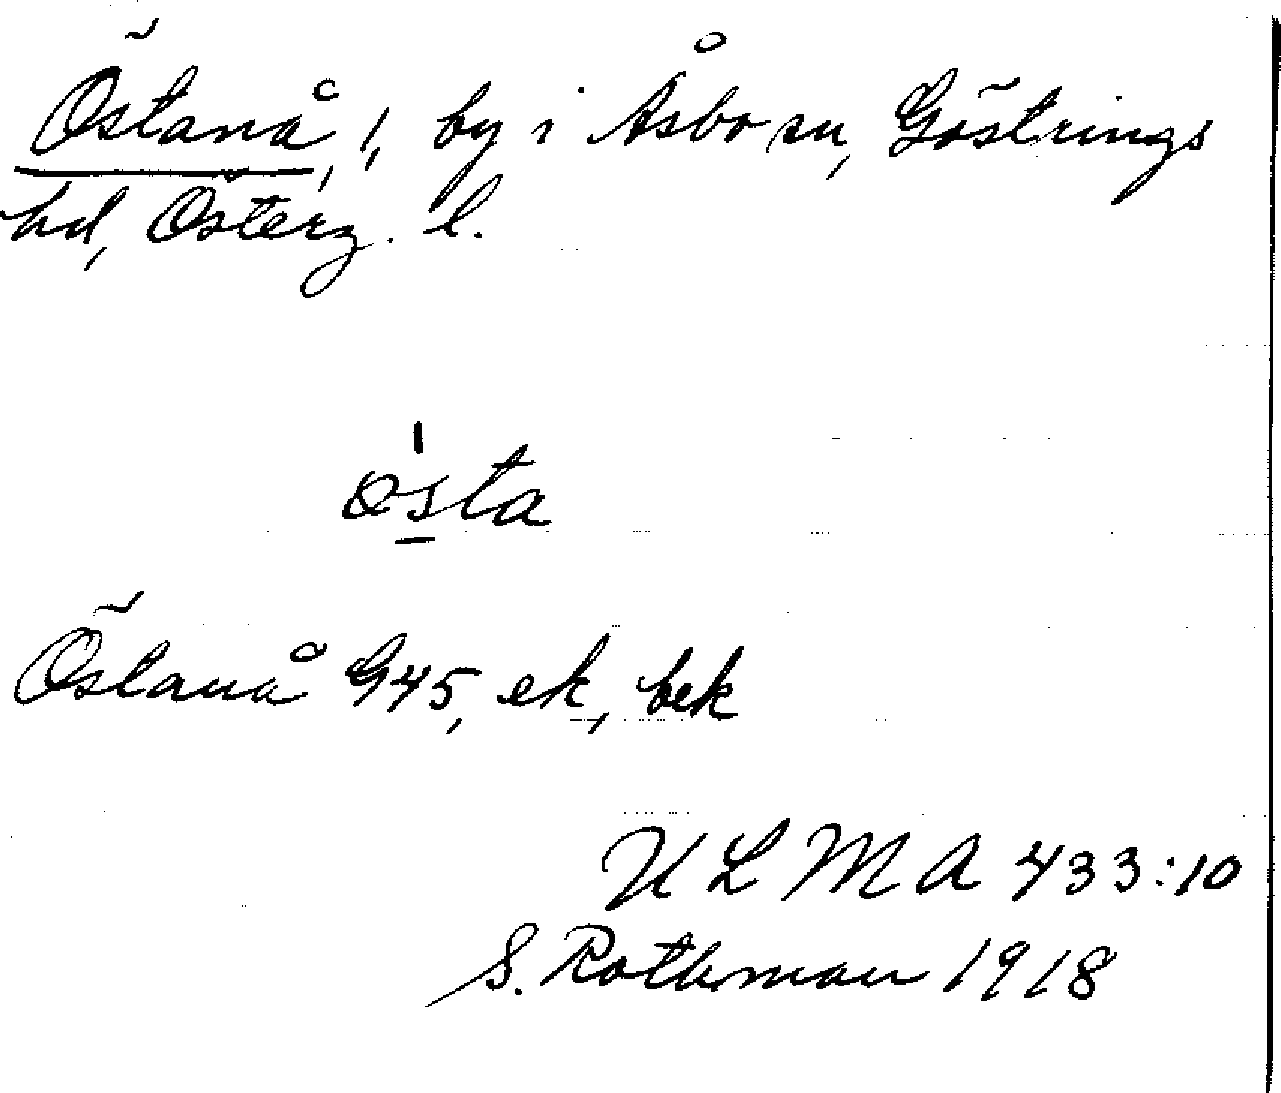 Östanå, 1, by i Åsbo sn, Göstrings
hd, Österg. l.
østa
Östanå G45, ek, bek
ULMA 433:10
S. Rothman 1918